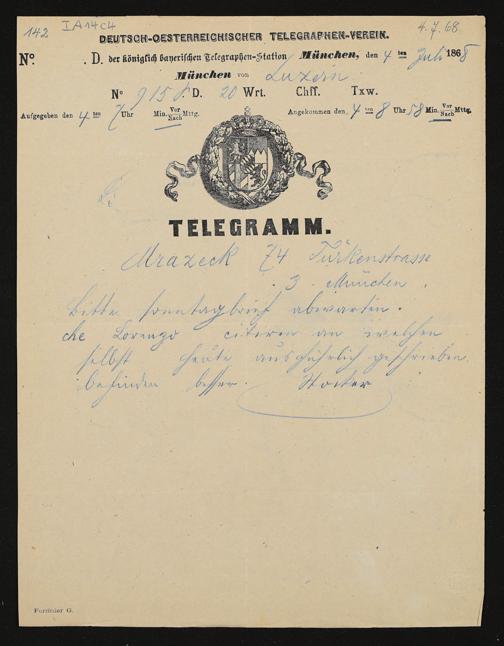 142 IA14c4 4.7.68
DEUTSCH-OESTERREICHISCHER TELEGRAPHEN-VEREIN.
Nº . D. der königlich bayerischen Telegraphen-Station München, den 4 ten Juli 1868
München von Luzern
Nº 915 8. D. 20 Wrt. Chff. Txw.
Aufgegeben den 4 ten 7 Uhr Min. Vor Nach Mttg. Angekommen den 4 ten 8 Uhr 58 Min. Vor Nach Mttg.
TELEGRAMM.
Mrazeck 74 Türkenstrasse
3. München.
Bitte sonntagbrief abwarten.
che Lorenzo citiren an welchen
selbst heute ausführlich geschrieben
befinden besser. Stocker